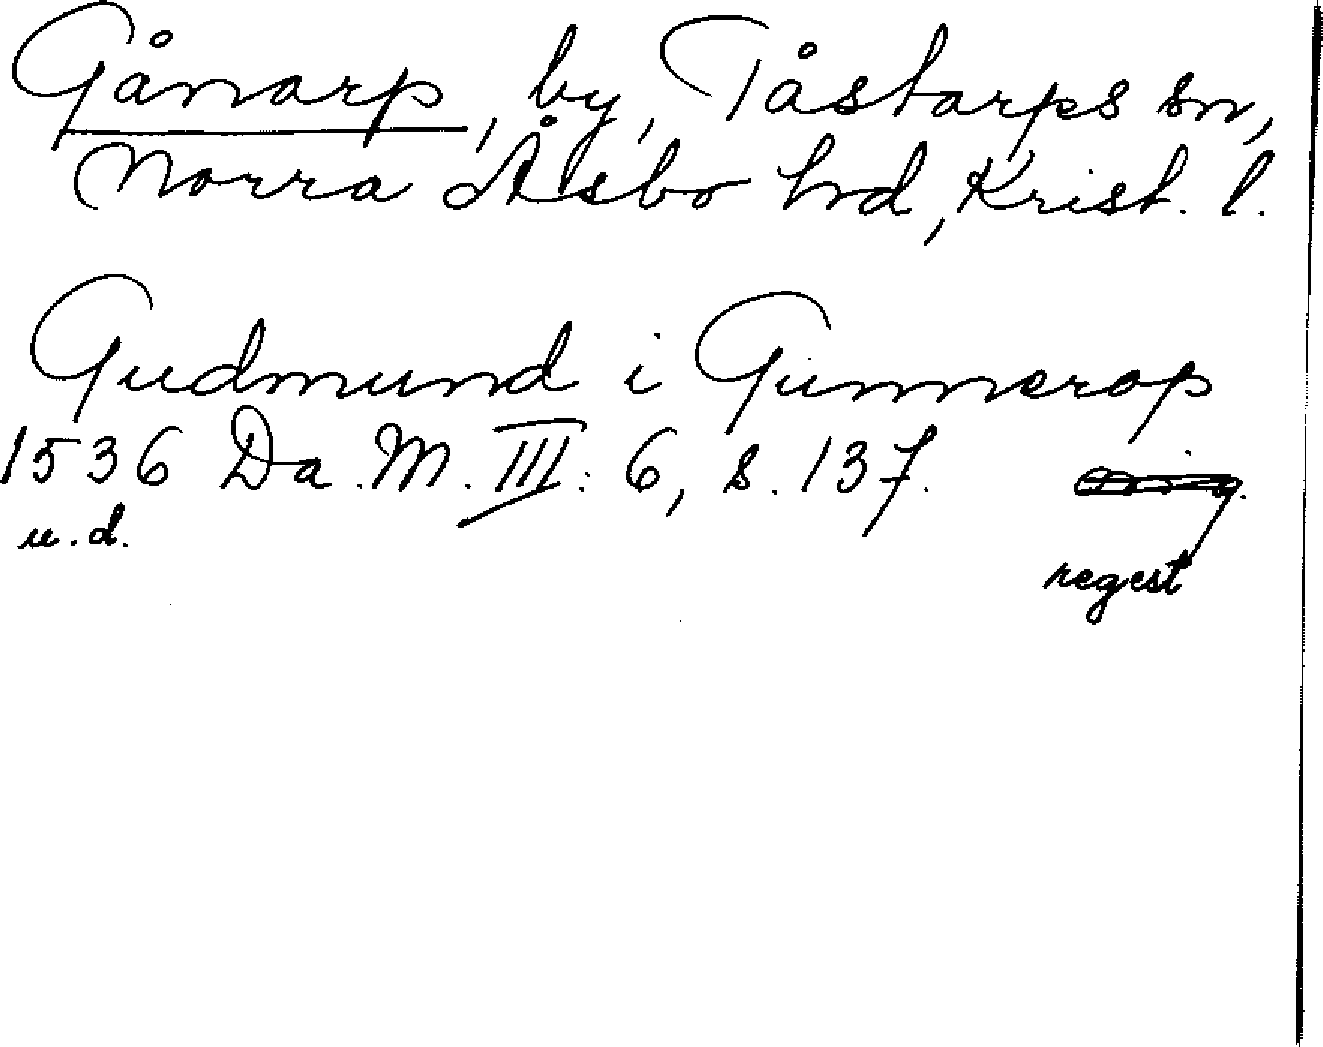 Gånarp, by, Tåstarps sn,
Norra Åsbo hd, Krist. l.
Gudmund i Gunnerop
1536 Da. M. III: 6, s. 137.
u. d.
regest